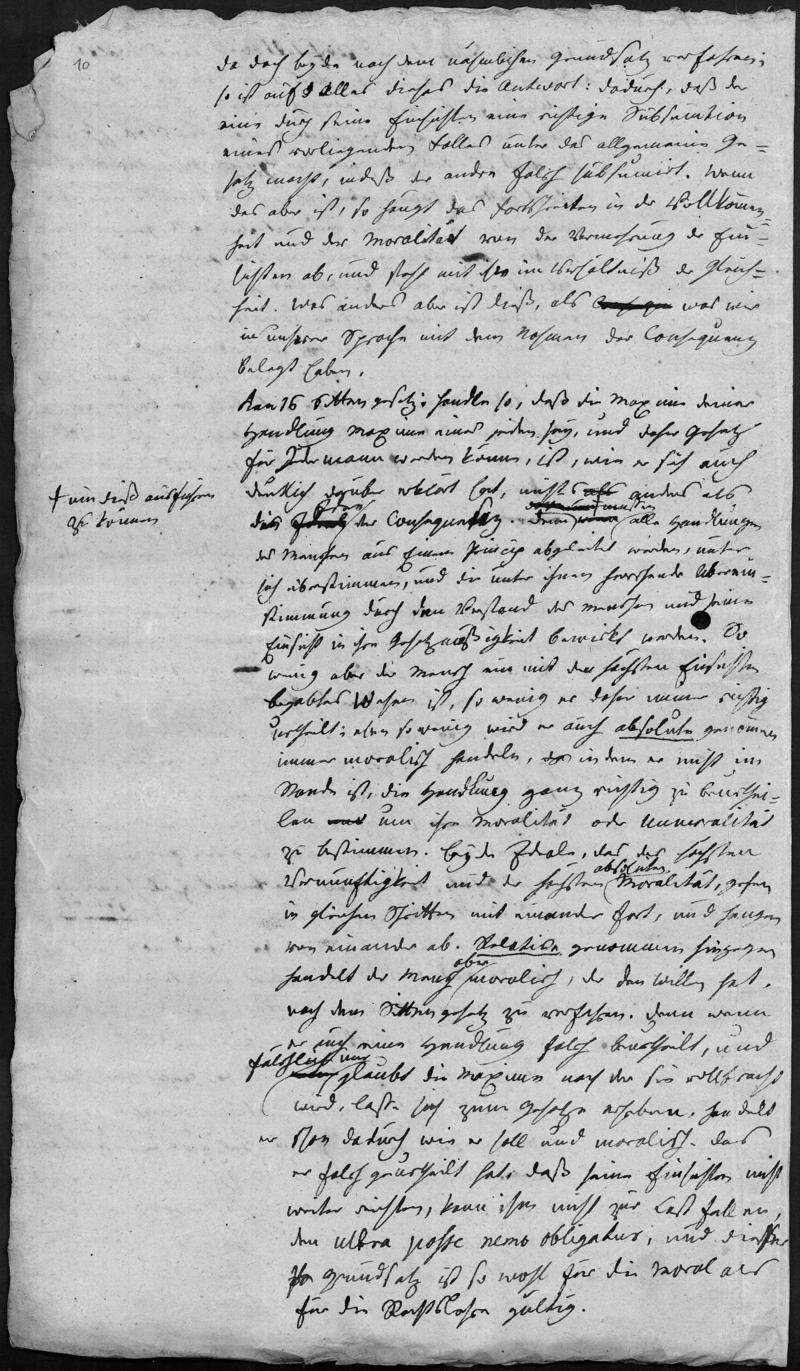 10
da doch beyde nach dem nähmlichen Grundsatz verfahren;
so ist auf Alles dieses die Antwort: dadurch, daß der
eine durch seine Einsichten eine richtige Subsumtion
eines vorliegenden Falles unter das allgemeine Ge=
setz macht, indeß der andere falsch subsumirt. Wenn
das aber ist, so hängt das Fortschreiten in der Vollkomm=
heit und der Moralität von der Vermehrung der Ein=
sichten ab, und steht mit ihr im Verhältniß der Gleich=
heit. Was anders aber ist dieß, als was wir
in unserer Sprache mit dem Nahmen der Consequenz
belegt haben.
Sittengesetz: handle so, daß die Maxime deiner
Handlung Maxime eines jeden sey, und daher Gesetz
für Jedermann werden könne, ist, wie er sich auch
deutlich darüber erklärt hat, nichts als anders als
das der Consequenz. Denn alle Handlungen
+ um dieß ausführen
zu können
des Menschen aus Einem Princip abgeleitet werden, unter
sich übereinstimmen, und die unter ihnen herrschende Überein=
stimmung durch den Verstand des Menschen und seine
Einsicht in ihre Gesetzmäßigkeit bewirkt werden. So
wenig aber der Mensch ein mit den höchsten Einsichten
begabtes Wesen ist, so wenig er daher immer richtig
urtheilt; eben so wenig wird er auch absolute genommen
immer moralisch handeln, indem er nicht im
Stande ist, die Handlung ganz richtig zu beurthei=
len um ihre Moralität oder Immoralität
zu bestimmen. Beyde Ideale, das der höchsten
Vernünftigkeit und der höchsten absoluten Moralität, gehen
in gleichen Schritten mit einander fort, und hangen
von einander ab. Relative genommen hingegen
handelt der Mensch aber moralisch, der den Willen hat,
nach dem Sittengesetz zu verfahren. Denn wenn
er auch eine Handlung falsch beurtheilt, und
fälschlich nur glaubt die Maxime nach der sie vollbracht
wird, lasse sich zum Gesetze erheben, handelt
er schon dadurch wie er soll und moralisch. Das
er falsch geurtheilt hat, daß seine Einsichten nicht
weiter reichten, kann ihm nicht zur Last fallen,
den ultra posse nemo obligatur, und dieser
Grundsatz ist so wohl für die Moral als
für die Rechtslehre gültig.